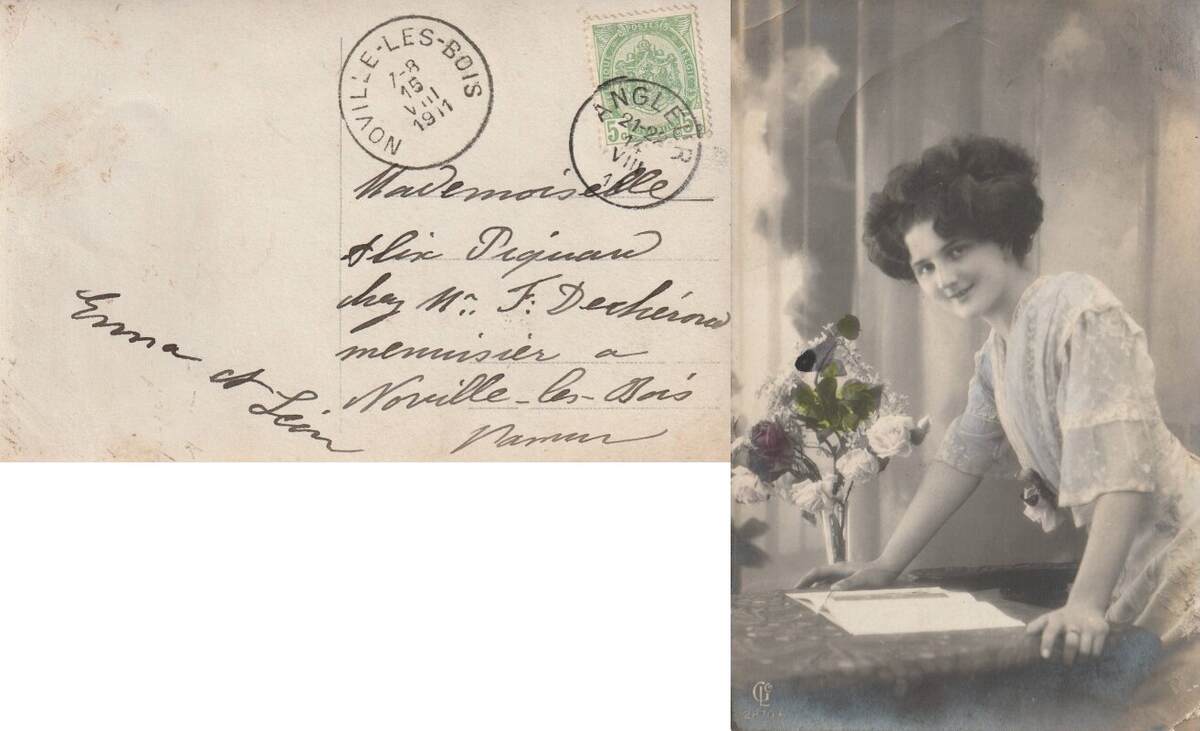 NOVILLE-LES-BOIS
7-8
15
VIII
1911
POSTES
5c
ANGLEUR
21-22
14
VIII
Mademoiselle
Alix Piquar
chez Mr. F.
menuisier a
Noville-les-Bois
Namur
Emma et Léon